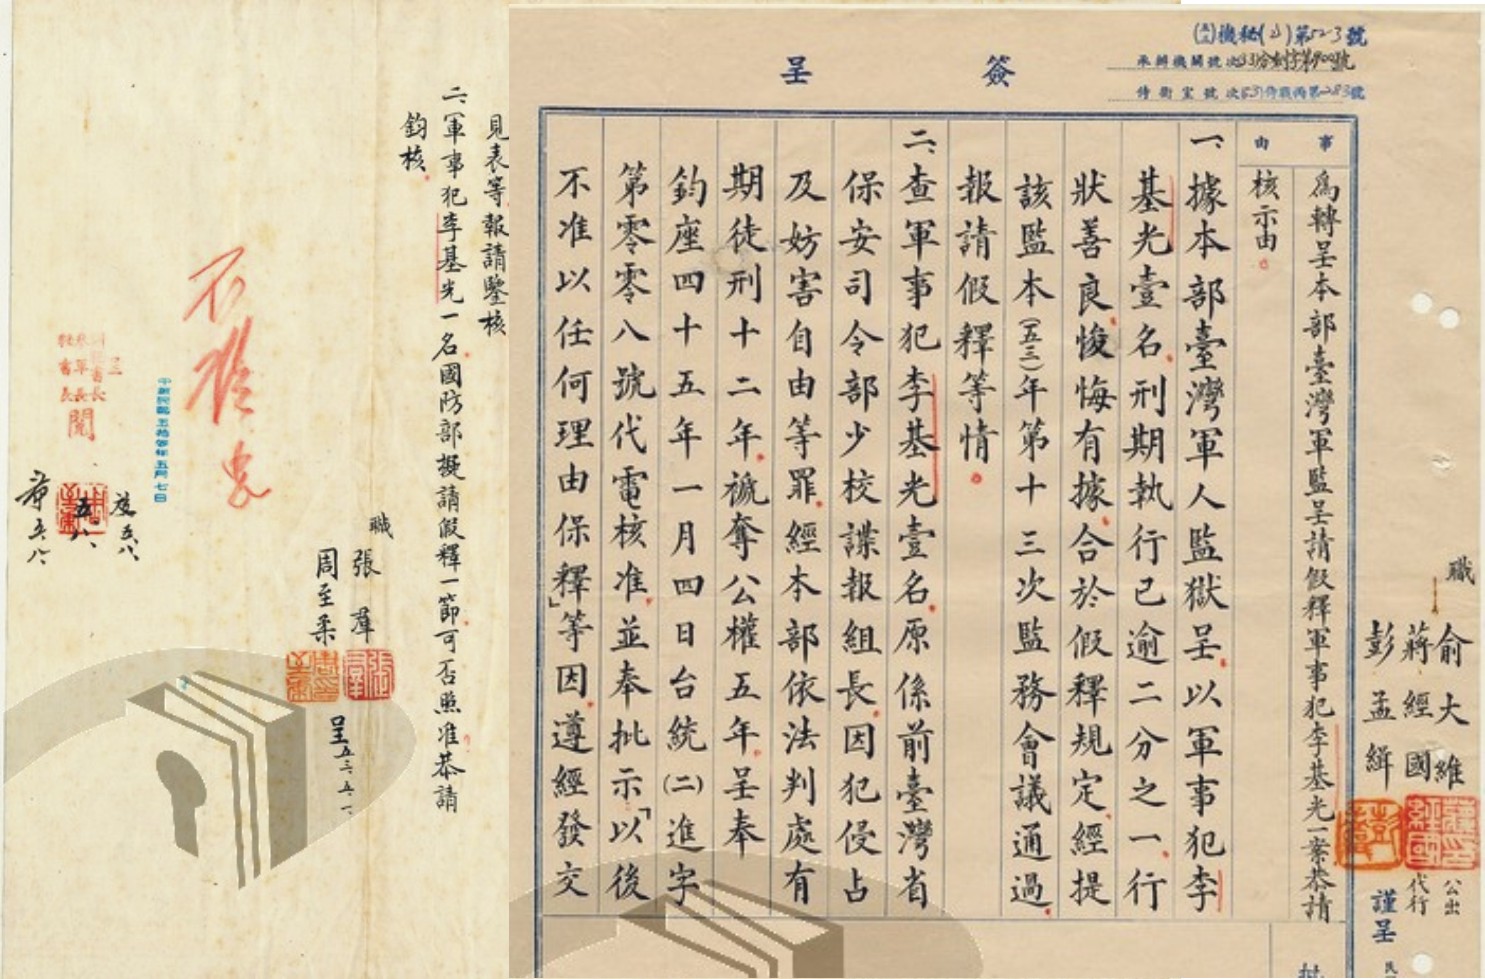 簽呈
機秘(乙)第52-3號
承辦機關號次
侍衛室號次
事由
為轉呈本部臺灣軍監呈請假釋軍事犯李基光一案恭請
核示由。
一、據本部臺灣軍人監獄呈以軍事犯李
基光壹名刑期執行已逾二分之一、行
狀善良悛悔有據合於假釋規定經提
該監本(五三)年第十三次監務會議通過
報請假釋等情。
二、查軍事犯李基光壹名原係前臺灣省
保安司令部少校諜報組長因犯侵占
及妨害自由等罪經本部依法判處有
期徒刑十二年褫奪公權五年呈奉
鈞座四十五年一月四日台統(二)進字
第零零八號代電核准並奉批示「以後
不准以任何理由保釋」等因遵經發交
職
俞大維
蔣經國
彭孟緝
公出
代行
謹呈
批
見表等報請鑒核
二、軍事犯李基光一名國防部擬請假釋一節可否照准恭請
鈞核。
職
張羣
周至柔
呈五三、五、一、
不准
中華民國五拾叁年五月七日
閱